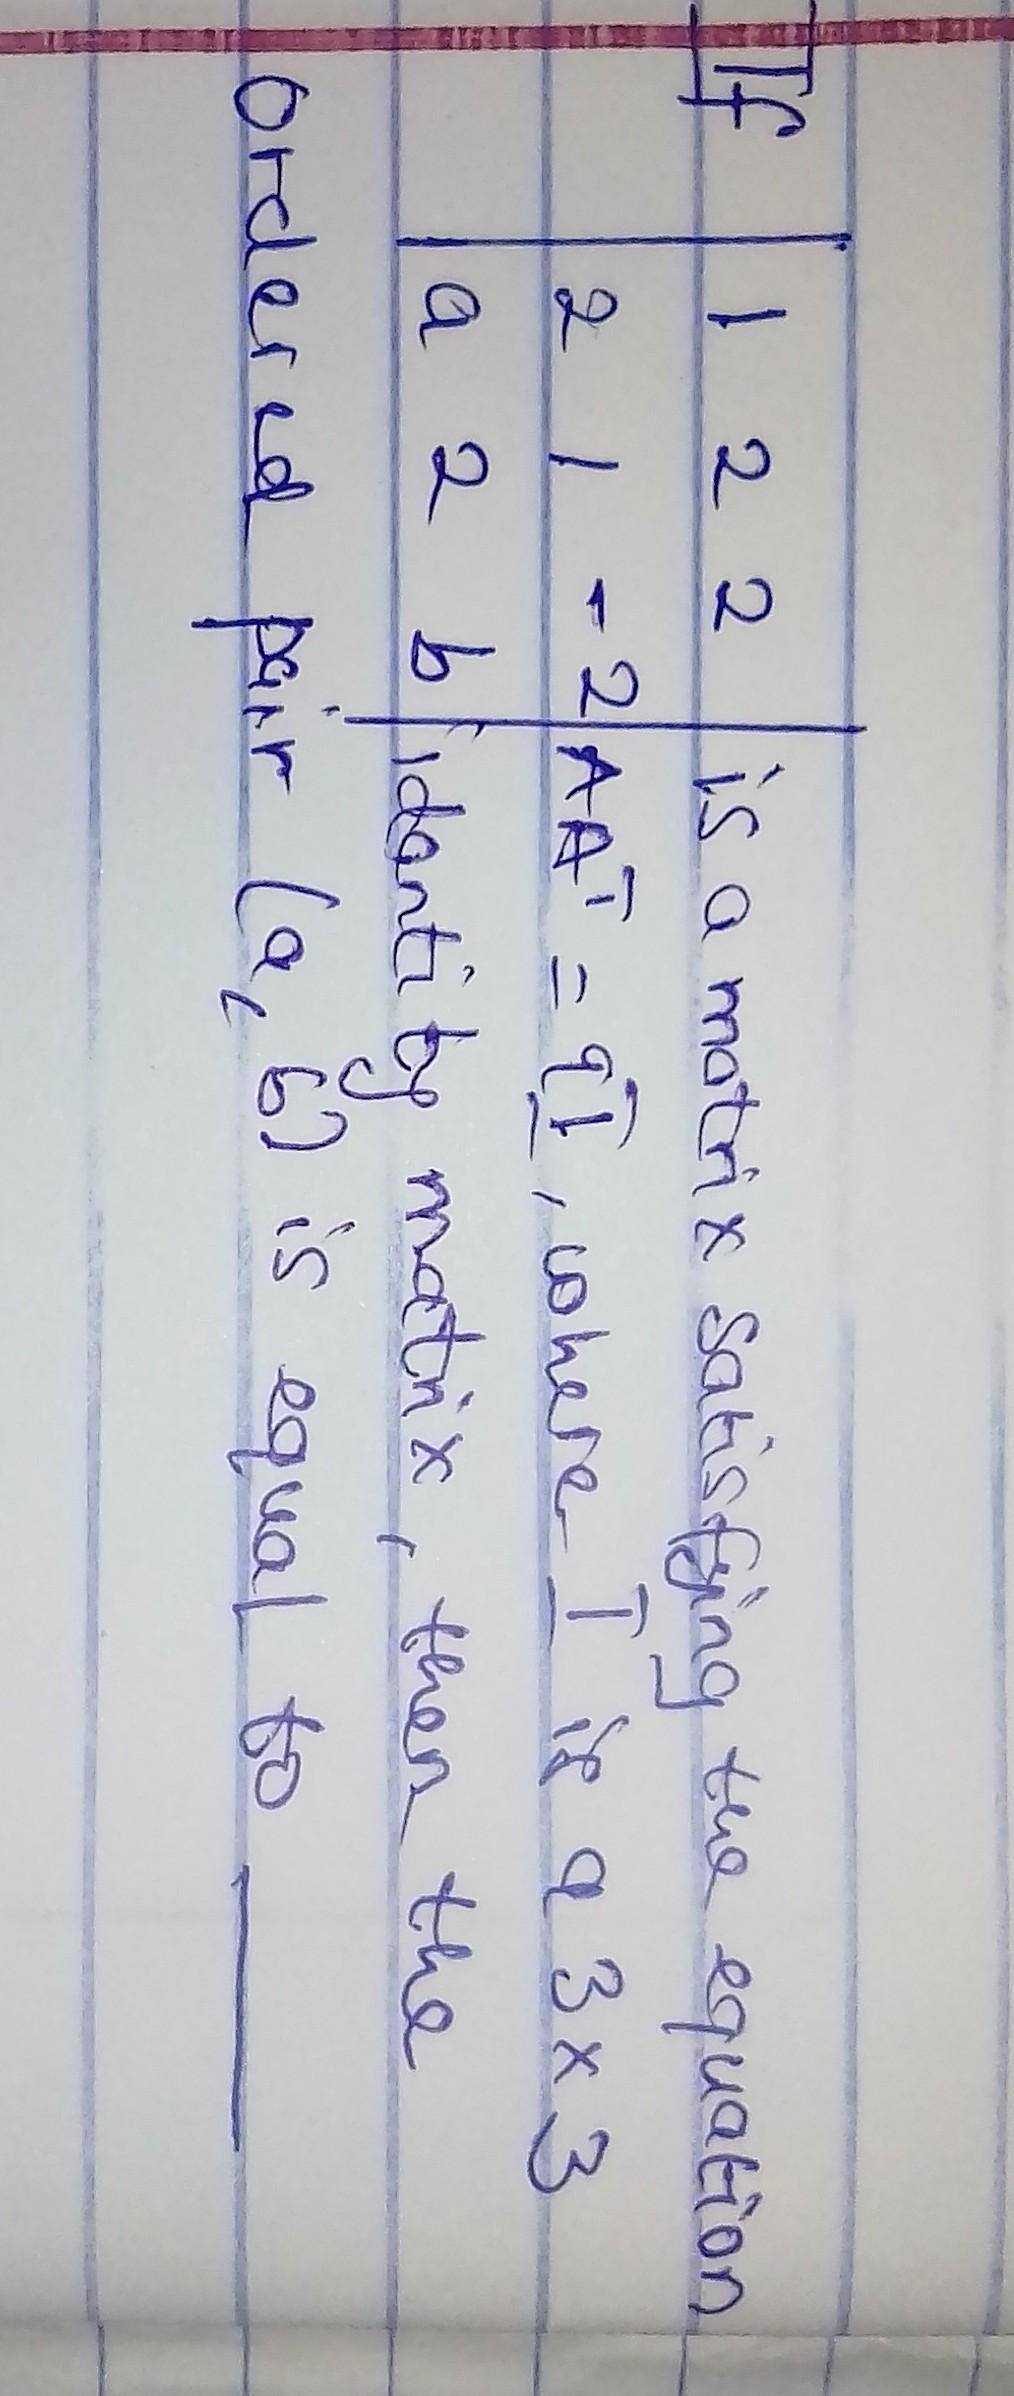 If | 1 2 2 | is a matrix satisfying the equation
| 2 1 -2 | AAᵀ = 9I, where I is a 3x3
| a 2 b | identity matrix, then the
ordered pair (a, b) is equal to ____